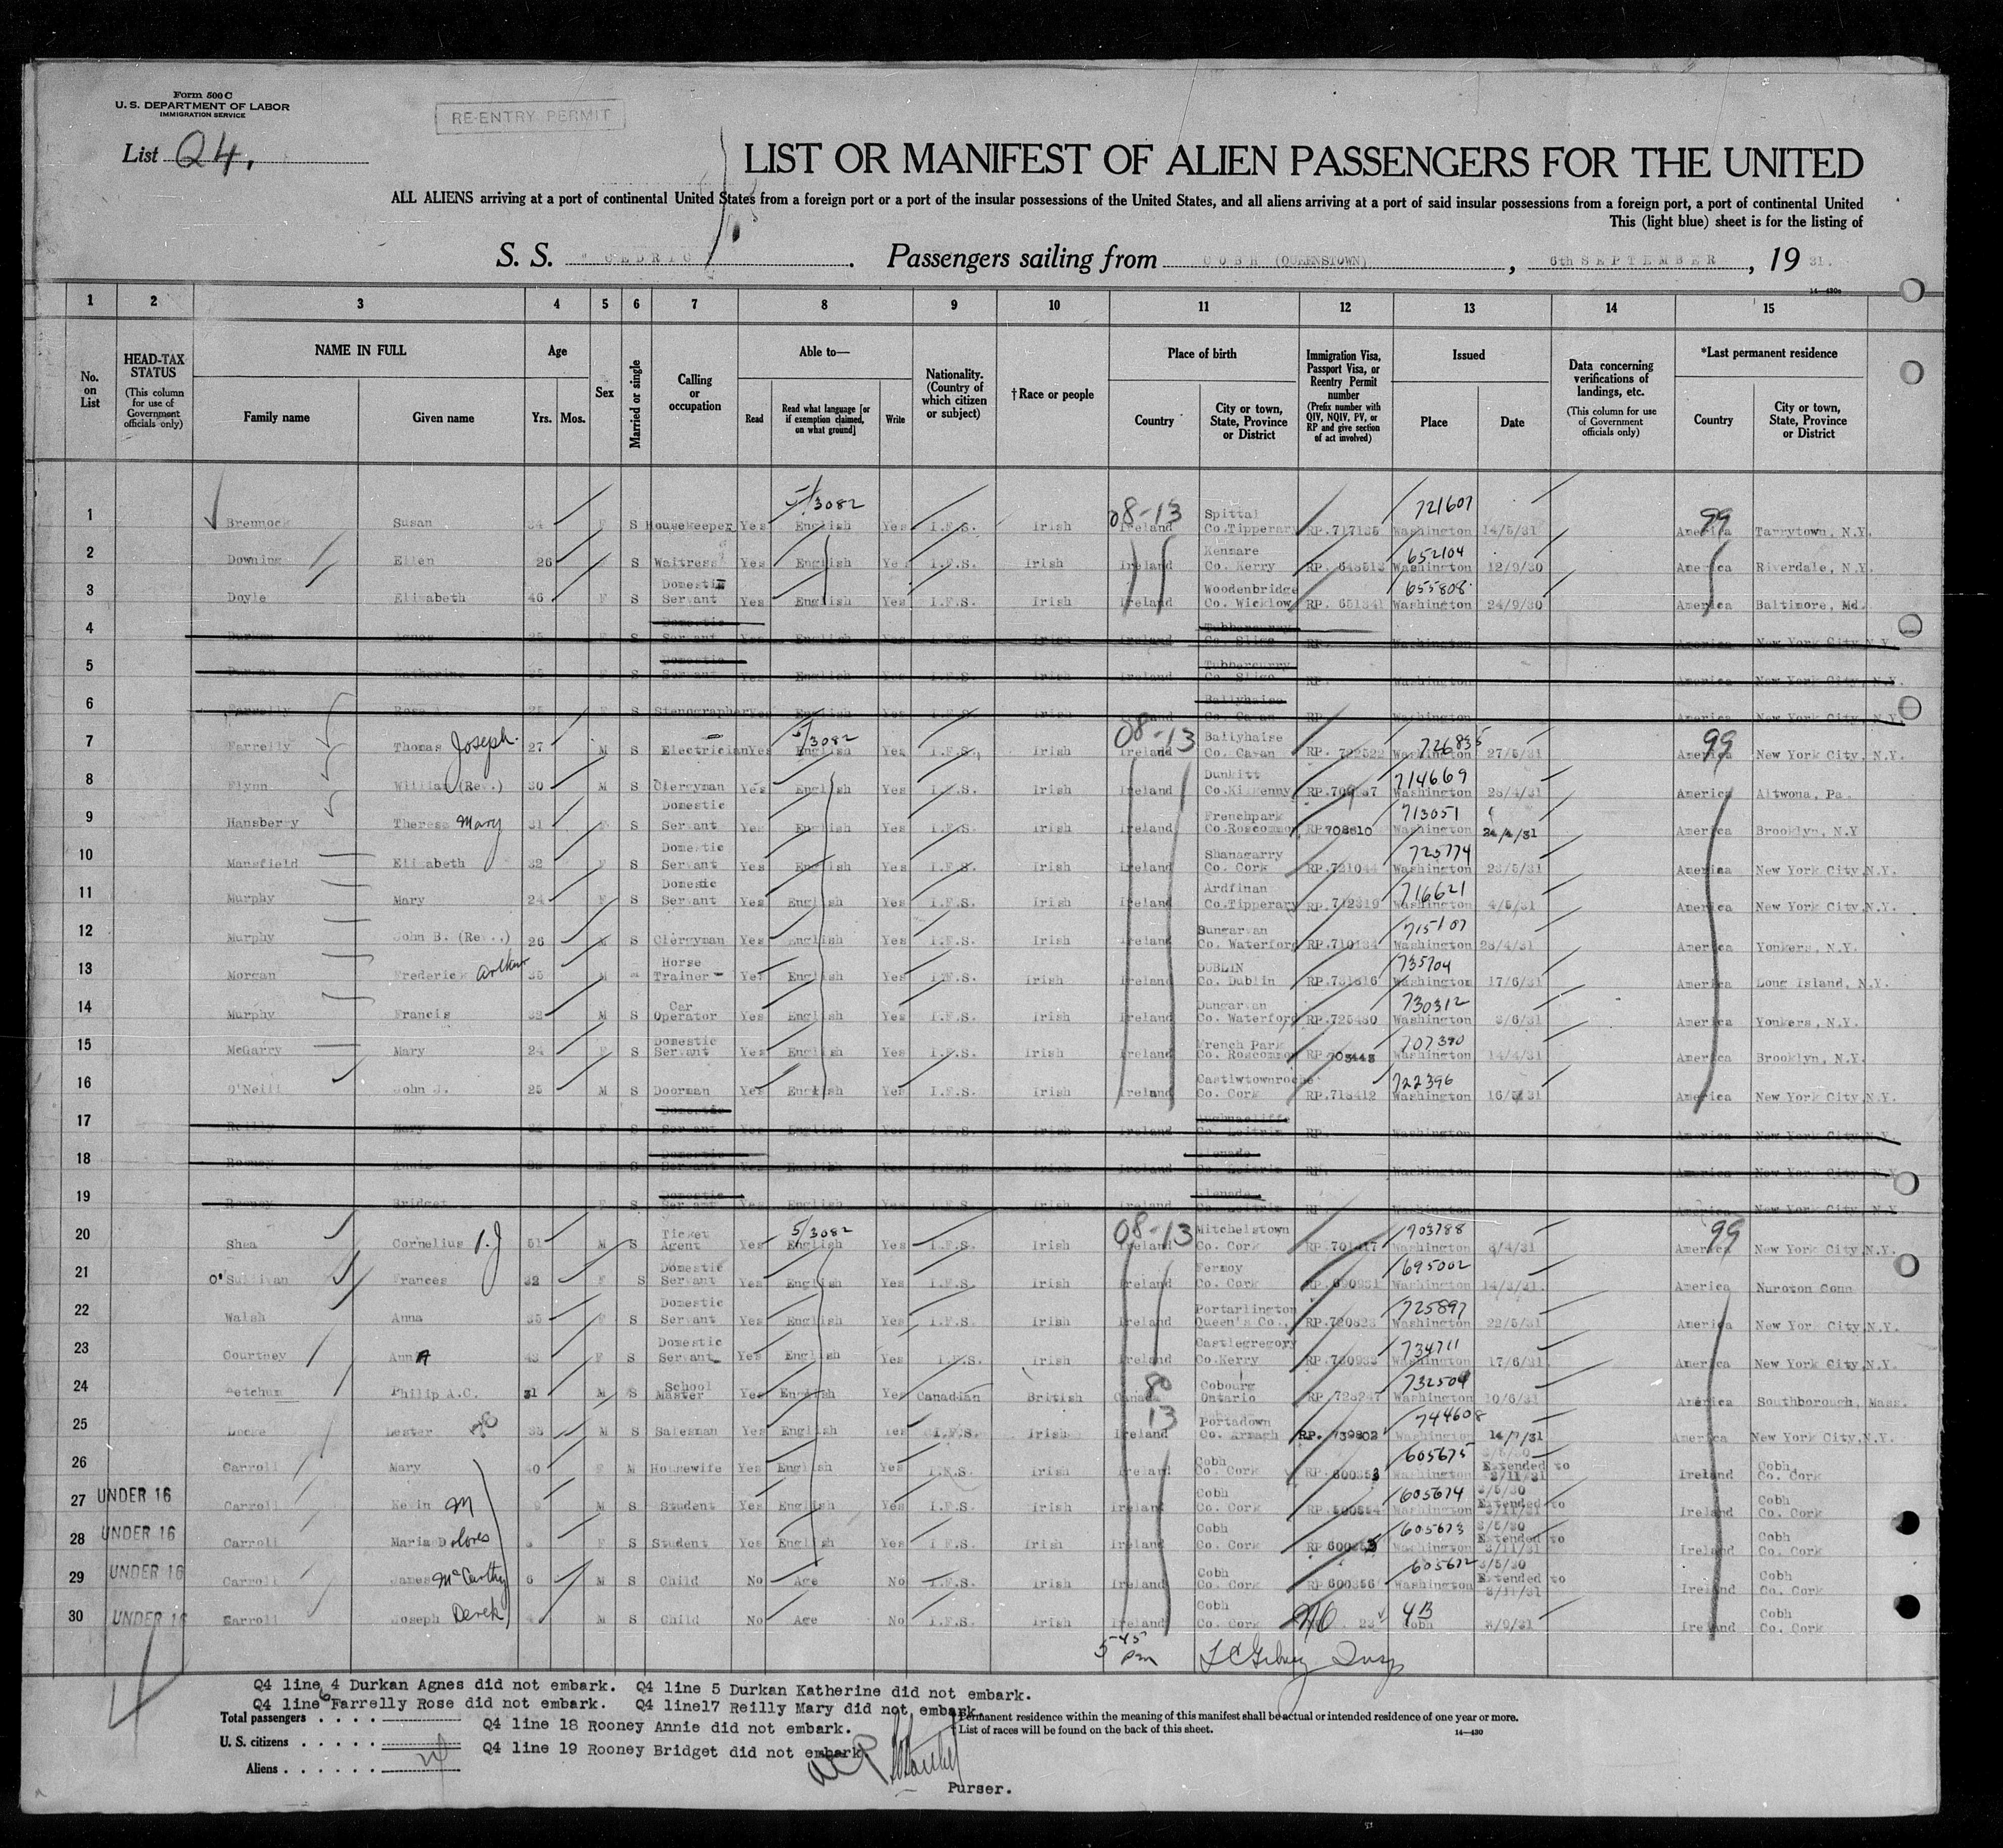 Form 500 C
U. S. DEPARTMENT OF LABOR
IMMIGRATION SERVICE
RE-ENTRY PERMIT
List Q4.
LIST OR MANIFEST OF ALIEN PASSENGERS FOR THE UNITED
ALL ALIENS arriving at a port of continental United States from a foreign port or a port of the insular possessions of the United States, and all aliens arriving at a port of said insular possessions from a foreign port, a port of continental United
This (light blue) sheet is for the listing of
S. S. "CEDRIC . Passengers sailing from COBH (QUEENSTOWN) , 6th SEPTEMBER , 19 31.
14—430a
1 2 3 4 5 6 7 8 9 10 11 12 13 14 15
No. on List
HEAD-TAX STATUS (This column for use of Government officials only)
NAME IN FULL Family name Given name
Age Yrs. Mos.
Sex
Married or single
Calling or occupation
Able to— Read Read what language [or if exemption claimed, on what ground] Write
Nationality. (Country of which citizen or subject)
†Race or people
Place of birth Country City or town, State, Province or District
Immigration Visa, Passport Visa, or Reentry Permit number (Prefix number with QIV, NQIV, PV, or RP and give section of act involved)
Issued Place Date
Data concerning verifications of landings, etc. (This column for use of Government officials only)
*Last permanent residence Country City or town, State, Province or District
5/3082 08-13 721607 99
1 Brennock Susan 34 F S Housekeeper Yes English Yes I.F.S. Irish Ireland Spittal Co.Tipperary RP.717135 Washington 14/5/31 America Tarrytown, N.Y.
652104
2 Downing Ellen 26 S Waitress Yes English Yes I.F.S. Irish Ireland Kenmare Co. Kerry RP. 648513 Washington 12/9/30 America Riverdale, N.Y.
655808
3 Doyle Elizabeth 46 F S Domestic Servant Yes English Yes I.F.S. Irish Ireland Woodenbridge Co. Wicklow RP. 651341 Washington 24/9/30 America Baltimore, Md.
4 Durkan Agnes 25 F S Domestic Servant Yes English Yes I.F.S. Irish Ireland Tubbercurry Co. Sligo RP. Washington America New York City,N.Y.
5 Durkan Katherine 25 F S Domestic Servant Yes English Yes I.F.S. Irish Ireland Tubbercurry Co. Sligo RP. Washington America New York City, N.Y.
6 Farrelly Rose 25 F S Stenographer Yes English Yes I.F.S. Irish Ireland Ballyhaise Co. Cavan RP. Washington America New York City, N.Y.
5/3082 08-13 726835 99
7 Farrelly Thomas Joseph. 27 M S Electrician Yes English Yes I.F.S. Irish Ireland Ballyhaise Co. Cavan RP. 722522 Washington 27/5/31 America New York City, N.Y.
714669
8 Flynn William (Rev.) 30 M S Clergyman Yes English Yes I.F.S. Irish Ireland Dunkitt Co.Kilkenny Washington 28/4/31 America Altwona, Pa.
713051
9 Hansberry Theresa Mary 31 F S Domestic Servant Yes English Yes I.F.S. Irish Ireland Frenchpark Co.Roscommon RP708810 Washington 24/4/31 America Brooklyn, N.Y
725774
10 Mansfield Elizabeth 32 F S Domestic Servant Yes English Yes I.F.S. Irish Ireland Shanagarry Co. Cork RP.721044 Washington 23/5/31 America New York City,N.Y.
716621
11 Murphy Mary 24 F S Domestic Servant Yes English Yes I.F.S. Irish Ireland Ardfinan Co.Tipperary RP.712319 Washington 4/5/31 America New York City,N.Y.
715107
12 Murphy John B. (Rev..) 26 M S Clergyman Yes English Yes I.F.S. Irish Ireland Dungarvan Co. Waterford RP.710134 Washington 28/4/31 America Yonkers, N.Y.
735704
13 Morgan Frederick Arthur 35 M Horse Trainer Yes English Yes I.F.S. Irish Ireland DUBLIN Co. Dublin RP.731316 Washington 17/6/31 America Long Island, N.Y.
730312
14 Murphy Francis 32 M S Car Operator Yes English Yes I.F.S. Irish Ireland Dungarvan Co. Waterford RP.725480 Washington 3/6/31 America Yonkers, N.Y.
707390
15 McGarry Mary 24 F S Domestic Servant Yes English Yes I.F.S. Irish Ireland French Park Co. Roscommon RP.703443 Washington 14/4/31 America Brooklyn, N.Y.
722396
16 O'Neill John J. 25 M S Doorman Yes English Yes I.F.S. Irish Ireland Castlwtownroche Co. Cork RP.718412 Washington 16/5/31 America New York City,N.Y.
17 Reilly Mary F S Domestic Servant Yes English Yes I.F.S. Irish Ireland Co. Leitrim RP. Washington America New York City,N.Y.
18 Rooney Annie F S Domestic Servant Yes English Yes I.F.S. Irish Ireland Glenade Co. Leitrim RP. Washington America New York City, N.Y.
19 Rooney Bridget F S Domestic Servant Yes English Yes I.F.S. Irish Ireland Glenade Co. Leitrim RP. Washington America New York City, N.Y.
5/3082 08-13 703788 99
20 Shea Cornelius P.J 51 M S Ticket Agent Yes English Yes I.F.S. Irish Ireland Mitchelstown Co. Cork Washington 2/4/31 America New York City,N.Y.
695002
21 O'Sullivan Frances 32 F S Domestic Servant Yes English Yes I.F.S. Irish Ireland Fermoy Co. Cork RP.690931 Washington 14/3/31. America Nuroton Conn
725897
22 Walsh Anna 35 F S Domestic Servant Yes English Yes I.F.S. Irish Ireland Portarlington Queen's Co., RP.720823 Washington 22/5/31 America New York City,N.Y.
734711
23 Courtney AnnA 43 F S Domestic Servant Yes English Yes I.F.S. Irish Ireland Castlegregory Co.Kerry RP.730933 Washington 17/6/31 America New York City,N.Y.
80 732504
24 Ketchum Philip A.C. 31 M S School Master Yes English Yes Canadian British Canada Cobourg Ontario RP.728247 Washington 10/6/31 America Southborough, Mass.
13 744608
25 Locke Lester 33 M S Salesman Yes English Yes I.F.S. Irish Ireland Portadown Co. Armagh RP. 739802 Washington 14/7/31 America New York City,N.Y.
605675
26 Carroll Mary 40 F M Housewife Yes English Yes I.F.S. Irish Ireland Cobh Co. Cork RP.600353 Washington 3/5/30 Extended to 3/11/31 Ireland Cobh Co. Cork
605674
27 UNDER 16 Carroll Kevin M M S Student Yes English Yes I.F.S. Irish Ireland Cobh Co. Cork Washington 3/5/30 Extended to 3/11/31 Ireland Cobh Co. Cork
605673
28 UNDER 16 Carroll Maria Dolores F S Student Yes English Yes I.F.S. Irish Ireland Cobh Co. Cork Washington 3/5/30 Extended to 3/11/31 Ireland Cobh Co. Cork
605672
29 UNDER 16 Carroll James McCarthy 6 M S Child No Age No I.F.S. Irish Ireland Cobh Co. Cork RP600356 Washington 3/5/30 Extended to 3/11/31 Ireland Cobh Co. Cork
30 UNDER 16 Carroll Joseph Derek 4 M S Child No Age No I.F.S. Irish Ireland Cobh Co. Cork 23 4B Cobh 3/9/31 Ireland Cobh Co. Cork
5 45 pm
Q4 line 4 Durkan Agnes did not embark. Q4 line 5 Durkan Katherine did not embark.
Q4 line 6 Farrelly Rose did not embark. Q4 line17 Reilly Mary did not embark.
Total passengers . . . .
Q4 line 18 Rooney Annie did not embark.
*Permanent residence within the meaning of this manifest shall be actual or intended residence of one year or more.
List of races will be found on the back of this sheet.
14—430
U. S. citizens . . . . .
Q4 line 19 Rooney Bridget did not embark
Aliens . . . . . .
Purser.